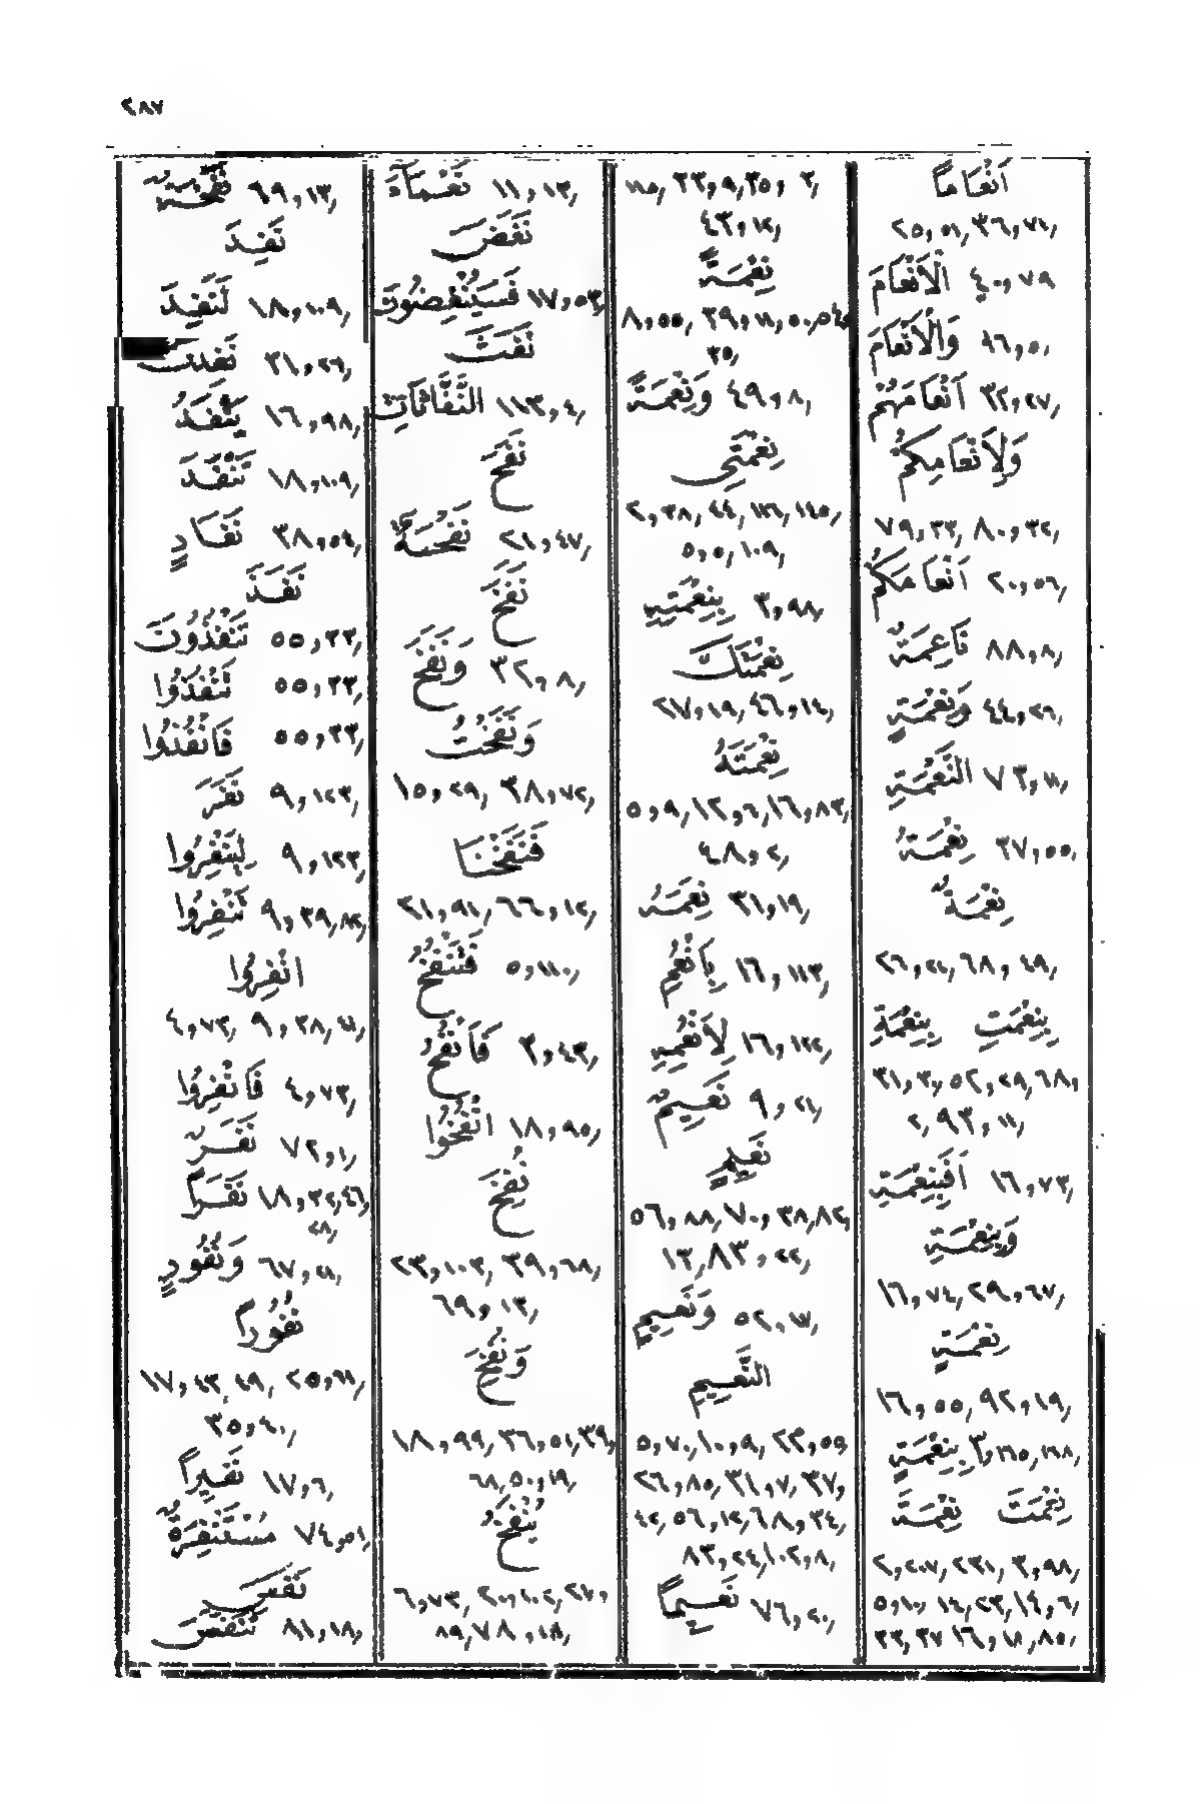 ٢٨٧
اَنْعَامًا
٢٥,٥١, ٣٦,٧١,
الْاَنْعَامَ ٤٠,٧٩
وَالْاَنْعَامَ ١٦,٥,
اَنْعَامَهُمْ ٣٢,٢٧,
وَلِاَنْعَامِكُمْ
٧٩,٣٣, ٨٠,٣٢,
اَنْعَامَكُمْ ٢٠,٥٦,
نَاعِمَةٌ ٨٨,٨,
وَنَعْمَةٍ ٤٤,٢٦,
النَّعْمَةِ ٧٣,١١,
نِعْمَةُ ٣٧,٥٥,
نِعْمَةٌ
٢٦,٢٢, ٦٨,٤٩,
بِنِعْمَتِ بِنِعْمَةِ
٣١,٣١, ٥٢,٢٩, ٦٨,
٢, ٩٣,١١,
اَفَبِنِعْمَةِ ١٦,٧١,
وَبِنِعْمَةِ
١٦,٧٢, ٢٩,٦٧,
نِعْمَةٍ
١٦,٥٥, ٩٢,١٩,
بِنِعْمَةٍ ٣,١٦٥,١٦٨,
نِعْمَتَ نِعْمَةَ
٢,٢٠٧, ٢٣١, ٣,٩٨,
٥,١٠, ١٤,٢٣, ١٤,٦,
٣٣, ٣٧ ١٦,١٨, ٨٥,
١١٥, ٣٣,٩, ٣٥, ٣,
٤٣,١٢,
نِعْمَةً
٨,٥٥, ٣٩,١١, ٥٠, ٥٤,
٣٥,
وَنِعْمَةً ٤٩,٨,
نِعْمَتِى
٢,٣٨, ٤٤, ١١٦, ١٤٥,
٥,٥, ١٠٩,
بِنِعْمَتِهِ ٣,٩٨,
نِعْمَتَكَ
٢٧,١٩, ٤٦,١٤,
نِعْمَتَهُ
٥,٩, ١٢,٦, ١٦,٨٣,
٤٨,٢,
نِعَمَهُ ٣١,١٩,
بِاَنْعُمِ ١٦,١١٣,
لِاَنْعُمِهِ ١٦,١٢٢,
نَعِيمٌ ٩,٢١,
نَعِيمٍ
٥٦,٨٨, ٧٠,٣٨, ٨٢,
١٣, ٨٣,٢٢,
وَنَعِيمٍ ٥٢,١٧,
النَّعِيمِ
٥,٧٠, ١٠,٩, ٢٢,٥٥,
٢٦,٨٥, ٣١,٧, ٣٧,
٤٢, ٥٦,١٢, ٦٨,٣٤,
٨٣,٢٤, ١٠٢,٨,
نَعِيمًا ٧٦,٢٠,
نَعْمَاءَ ١١,١٣,
نَغَضَ
فَسَيُنْغِضُونَ ١٧,٥٣,
نَفَثَ
النَّفَّاثَاتِ ١١٣,٤,
نَفَحَ
نَفْحَةٌ ٢١,٤٧,
نَفَخَ
وَنَفَخَ ٣٢,٨,
وَنَفَخْتُ
١٥,٢٩, ٣٨,٧٢,
فَنَفَخْنَا
٢١,٩١, ٦٦,١٢,
فَتَنْفُخُ ٥,١١٠,
فَاَنْفُخُ ٣,٤٣,
انْفُخُوا ١٨,٩٥,
نُفِخَ
٢٣,١٠٣, ٣٩,٦٨,
٦٩,١٣,
وَنُفِخَ
١٨,٩٩, ٣٦,٥١, ٣٩,
٦٨, ٥٠,١٩,
يُنْفَخُ
٦,٧٣, ٢٠,١٠٢, ٢٧,
٨٩, ٧٨,١٨,
نَفْخَةٌ ٦٩,١٣,
نَفِدَ
لَنَفِدَ ١٨,١٠٩,
نَفِدَتْ ٣١,٢٦,
يَنْفَدُ ١٦,٩٨,
تَنْفَدَ ١٨,١٠٩,
نَفَادٍ ٣٨,٥٤,
نَفَذَ
تَنْفُذُونَ ٥٥,٣٣,
تَنْفُذُوا ٥٥,٣٣,
فَانْفُذُوا ٥٥,٣٣,
نَفَرَ ٩,١٢٣,
لِيَنْفِرُوا ٩,١٢٣,
تَنْفِرُوا ٩,٣٩, ٨٢,
انْفِرُوا
٤,٧٣, ٩,٣٨, ٤١,
فَانْفِرُوا ٤,٧٣,
نَفَرٌ ٧٢,١,
نَفَرًا ١٨,٣٢, ٤٦,
٢٨,
وَنُفُورٍ ٦٧,٢١,
نُفُورًا
١٧,٤٣, ٤٩, ٢٥,٦١,
٣٥,٤٠,
نَفِيرًا ١٧,٦,
مُسْتَنْفِرَةٌ ٧٤,٥١,
نَفَسَ
تَنَفَّسَ ٨١,١٨,